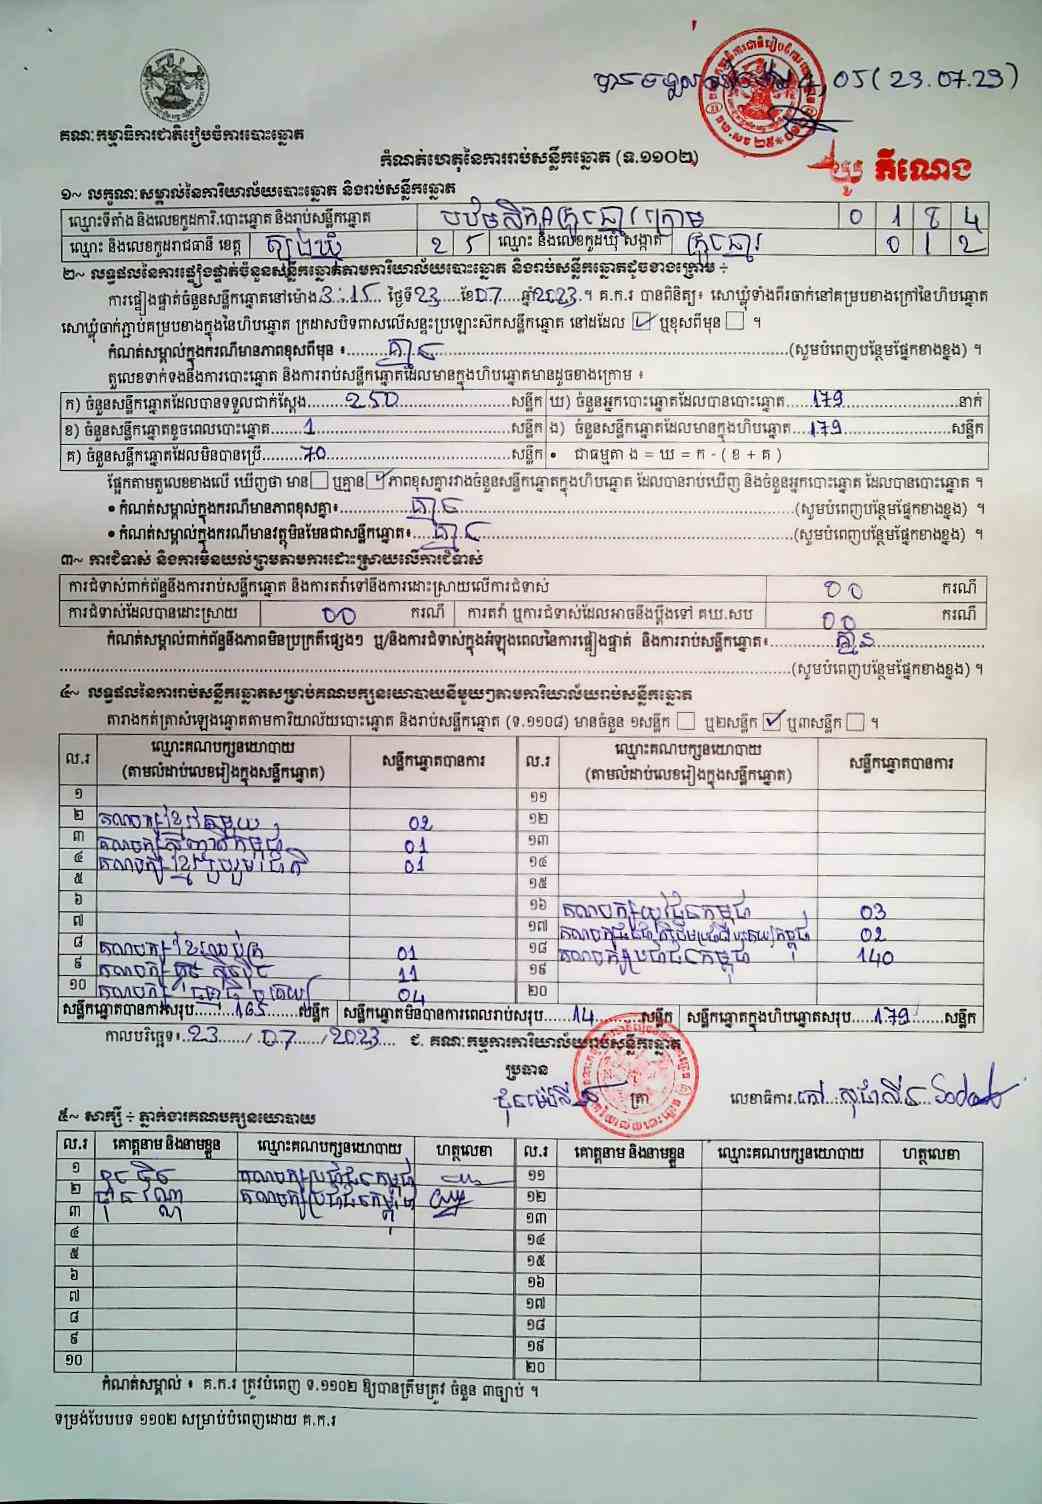 បានទទួលនៅម៉ោង 4,05 (23.07.23)
គណៈកម្មាធិការជាតិរៀបចំការបោះឆ្នោត
កំណត់ហេតុនៃការរាប់សន្លឹកឆ្នោត (ទ.១១០២)
យូ គីណេង
១~ លក្ខណៈសម្គាល់នៃការិយាល័យបោះឆ្នោត និងរាប់សន្លឹកឆ្នោត
ឈ្មោះទីតាំង និងលេខកូដការិ.បោះឆ្នោត និងរាប់សន្លឹកឆ្នោត 0 1 8 4
ឈ្មោះ និងលេខកូដរាជធានី ខេត្ត ត្បូងឃ្មុំ 2 5 ឈ្មោះ និងលេខកូដឃុំ សង្កាត់ 0 1 2
២~ លទ្ធផលនៃការផ្ទៀងផ្ទាត់ចំនួនសន្លឹកឆ្នោតតាមការិយាល័យបោះឆ្នោត និងរាប់សន្លឹកឆ្នោតដូចខាងក្រោម ÷
ការផ្ទៀងផ្ទាត់ចំនួនសន្លឹកឆ្នោតនៅម៉ោង 3:15 ថ្ងៃទី 23 ខែ 07 ឆ្នាំ 2023 ។ គ.ក.រ បានពិនិត្យ៖ សោឃ្លុំទាំងពីរចាក់នៅគម្របខាងក្រៅនៃហិបឆ្នោត
សោឃ្លុំចាក់ភ្ជាប់គម្របខាងក្នុងនៃហិបឆ្នោត ក្រដាសបិទពាសលើសន្ទះប្រឡោះស៊កសន្លឹកឆ្នោត នៅដដែល ☑ ឬខុសពីមុន ☐ ។
កំណត់សម្គាល់ក្នុងករណីមានភាពខុសពីមុន ៖ គ្មាន (សូមបំពេញបន្ថែមផ្នែកខាងខ្នង) ។
តួលេខទាក់ទងនឹងការបោះឆ្នោត និងការរាប់សន្លឹកឆ្នោតដែលមានក្នុងហិបឆ្នោតមានដូចខាងក្រោម ៖
ក) ចំនួនសន្លឹកឆ្នោតដែលបានទទួលជាក់ស្តែង 250 សន្លឹក ឃ) ចំនួនអ្នកបោះឆ្នោតដែលបានបោះឆ្នោត 179 នាក់
ខ) ចំនួនសន្លឹកឆ្នោតខូចពេលបោះឆ្នោត 1 សន្លឹក ង) ចំនួនសន្លឹកឆ្នោតដែលមានក្នុងហិបឆ្នោត 179 សន្លឹក
គ) ចំនួនសន្លឹកឆ្នោតដែលមិនបានប្រើ 70 សន្លឹក • ជាធម្មតា ង = ឃ = ក - ( ខ + គ )
ផ្អែកតាមតួលេខខាងលើ ឃើញថា មាន ☐ ឬគ្មាន ☑ ភាពខុសគ្នារវាងចំនួនសន្លឹកឆ្នោតក្នុងហិបឆ្នោត ដែលបានរាប់ឃើញ និងចំនួនអ្នកបោះឆ្នោត ដែលបានបោះឆ្នោត ។
• កំណត់សម្គាល់ក្នុងករណីមានភាពខុសគ្នា៖ គ្មាន (សូមបំពេញបន្ថែមផ្នែកខាងខ្នង) ។
• កំណត់សម្គាល់ក្នុងករណីមានវត្ថុមិនមែនជាសន្លឹកឆ្នោត៖ គ្មាន (សូមបំពេញបន្ថែមផ្នែកខាងខ្នង) ។
៣~ ការជំទាស់ និងការមិនយល់ព្រមតាមការដោះស្រាយលើការជំទាស់
ការជំទាស់ពាក់ព័ន្ធនឹងការរាប់សន្លឹកឆ្នោត និងការតវ៉ាទៅនឹងការដោះស្រាយលើការជំទាស់ 00 ករណី
ការជំទាស់ដែលបានដោះស្រាយ 00 ករណី ការតវ៉ា ឬការជំទាស់ដែលអាចនឹងប្តឹងទៅ គឃ.សប 00 ករណី
កំណត់សម្គាល់ពាក់ព័ន្ធនឹងភាពមិនប្រក្រតីផ្សេងៗ ឬ/និងការជំទាស់ក្នុងអំឡុងពេលនៃការផ្ទៀងផ្ទាត់ និងការរាប់សន្លឹកឆ្នោត៖ គ្មាន
(សូមបំពេញបន្ថែមផ្នែកខាងខ្នង) ។
៤~ លទ្ធផលនៃការរាប់សន្លឹកឆ្នោតសម្រាប់គណបក្សនយោបាយនីមួយៗតាមការិយាល័យរាប់សន្លឹកឆ្នោត
តារាងកត់ត្រាសំឡេងឆ្នោតតាមការិយាល័យបោះឆ្នោត និងរាប់សន្លឹកឆ្នោត (ទ.១១០៨) មានចំនួន ១សន្លឹក ☐ ឬ២សន្លឹក ☑ ឬ៣សន្លឹក ☐ ។
ល.រ ឈ្មោះគណបក្សនយោបាយ សន្លឹកឆ្នោតបានការ ល.រ ឈ្មោះគណបក្សនយោបាយ សន្លឹកឆ្នោតបានការ
(តាមលំដាប់លេខរៀងក្នុងសន្លឹកឆ្នោត) (តាមលំដាប់លេខរៀងក្នុងសន្លឹកឆ្នោត)
១ ១១
២ គណបក្សខ្មែរតែមួយ 02 ១២
៣ គណបក្ស 01 ១៣
៤ គណបក្សខ្មែររួបរួមជាតិ 01 ១៤
៥ ១៥
៦ ១៦ គណបក្សយុវជនកម្ពុជា 03
៧ ១៧ គណបក្ស 02
៨ គណបក្ស 01 ១៨ គណបក្សប្រជាជនកម្ពុជា 140
៩ គណបក្សហ្វ៊ុនស៊ិនប៉ិច 11 ១៩
១០ គណបក្ស 04 ២០
សន្លឹកឆ្នោតបានការសរុប 165 សន្លឹក សន្លឹកឆ្នោតមិនបានការពេលរាប់សរុប 14 សន្លឹក សន្លឹកឆ្នោតក្នុងហិបឆ្នោតសរុប 179 សន្លឹក
កាលបរិច្ឆេទ៖ 23 / 07 / 2023 ជ. គណៈកម្មការការិយាល័យរាប់សន្លឹកឆ្នោត
ប្រធាន
ត្រា លេខាធិការ
៥~ សាក្សី ÷ ភ្នាក់ងារគណបក្សនយោបាយ
ល.រ គោត្តនាម និងនាមខ្លួន ឈ្មោះគណបក្សនយោបាយ ហត្ថលេខា ល.រ គោត្តនាម និងនាមខ្លួន ឈ្មោះគណបក្សនយោបាយ ហត្ថលេខា
១ គណបក្សប្រជាជនកម្ពុជា ១១
២ វណ្ណា គណបក្សប្រជាជនកម្ពុជា ១២
៣ ១៣
៤ ១៤
៥ ១៥
៦ ១៦
៧ ១៧
៨ ១៨
៩ ១៩
១០ ២០
កំណត់សម្គាល់ ៖ គ.ក.រ ត្រូវបំពេញ ទ.១១០២ ឱ្យបានត្រឹមត្រូវ ចំនួន ៣ច្បាប់ ។
ទម្រង់បែបបទ ១១០២ សម្រាប់បំពេញដោយ គ.ក.រ